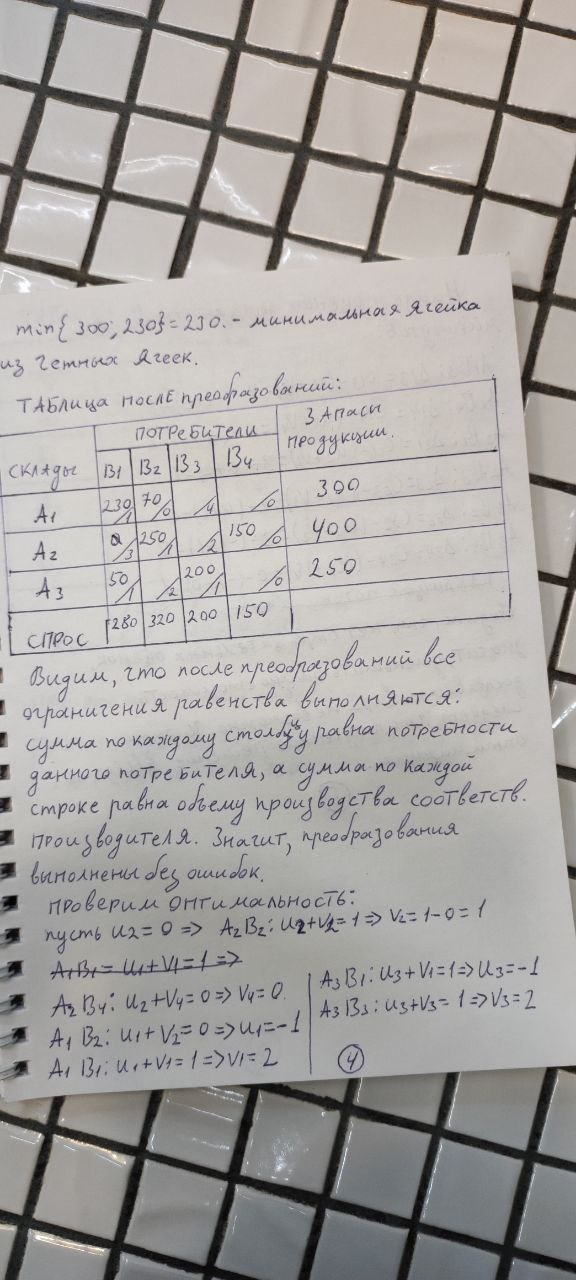 min{300; 230}=230. - минимальная ячейка
из четных ячеек.
Таблица после преобразований:
СКЛАДЫ ПОТРЕБИТЕЛИ ЗАПАСЫ ПРОДУКЦИИ.
B1 B2 B3 B4
A1 230/1 70/0 /4 /0 300
A2 0/3 250/1 /2 150/0 400
A3 50/1 /2 200/1 /0 250
СПРОС 280 320 200 150
Видим, что после преобразований все
ограничения равенства выполняются:
сумма по каждому столбцу равна потребности
данного потребителя, а сумма по каждой
строке равна объему производства соответств.
производителя. Значит, преобразования
выполнены без ошибок.
Проверим оптимальность:
пусть u2=0 => A2B2: u2+v2=1 => v2=1-0=1
A1B1= u1+v1=1 =>
A2B4: u2+v4=0 => v4=0.
A1B2: u1+v2=0 => u1=-1
A1B1: u1+v1=1 => v1=2
A3B1: u3+v1=1 => u3=-1
A3B3: u3+v3=1 => v3=2
4